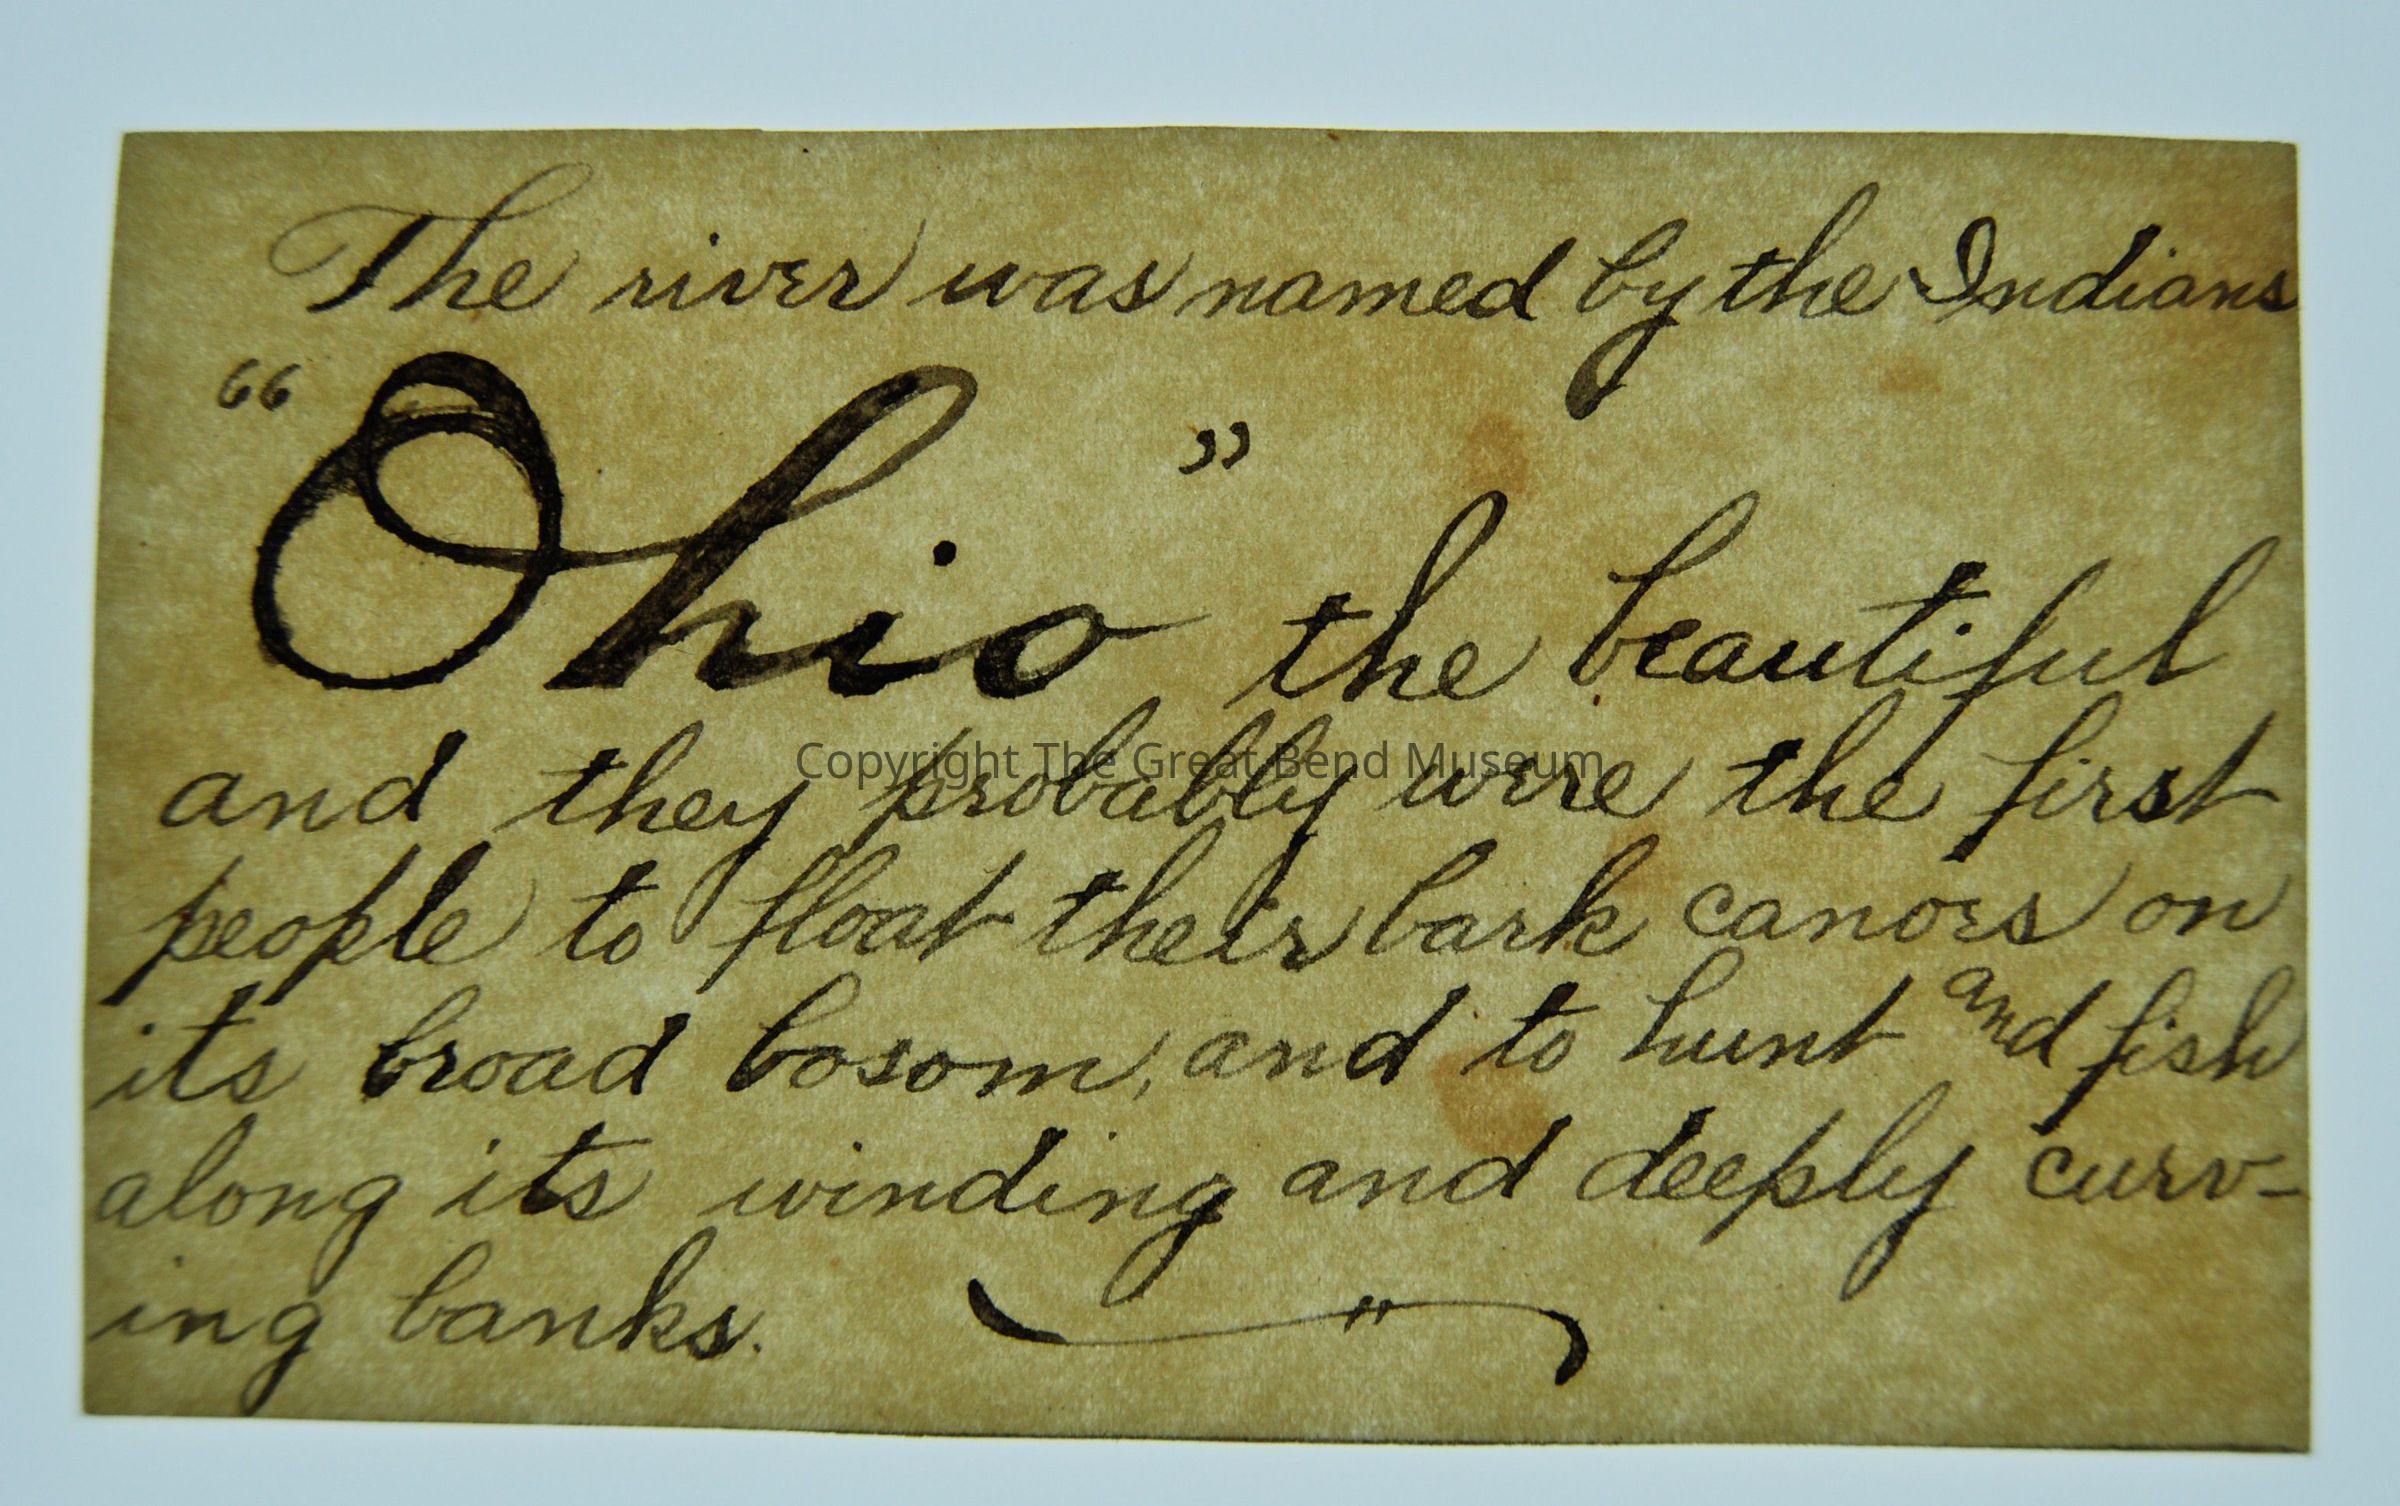 The river was named by the Indians
“Ohio” the beautiful
and they probably were the first
Copyright The Great Bend Museum
people to float their bark canoes on
its broad bosom, and to hunt and fish
along its winding and deeply curv-
ing banks.